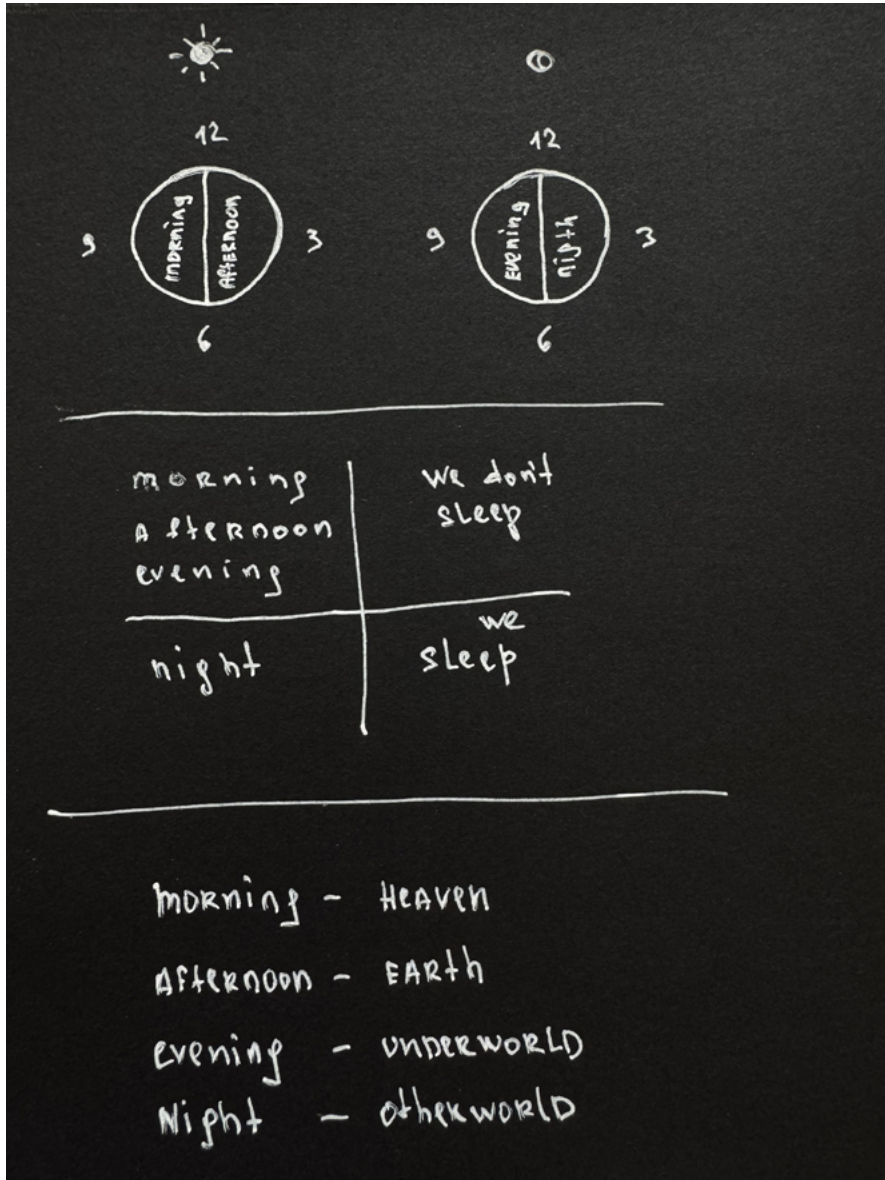 12
12
9
morning
AFTERNOON
3
9
Evening
nigth
3
6
6
morning
Afternoon
evening
we don't
sleep
night
we
sleep
morning - HEAVEN
AFTERNOON - EARTH
evening - UNDERWORLD
Night - OTHERWORLD